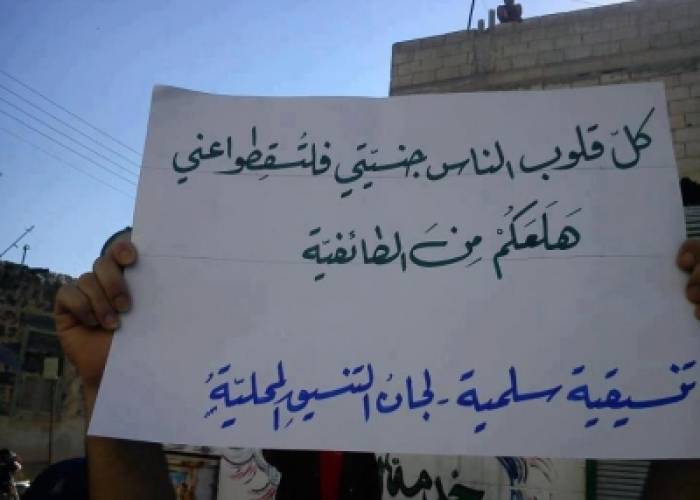 كلّ قلوب الناس جنسيّتي فلتُسقِطوا عني
هَلَعَكُمْ مِنَ الطائفيّة
تنسيقية سلمية - لجان التنسيقِ المحليّةِ
خدمة